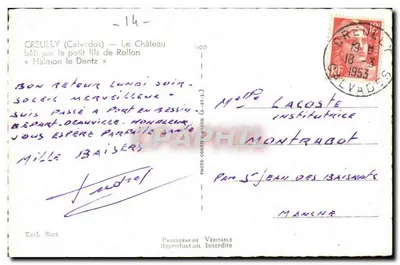 - 14 -
CREULLY (Calvados) - Le Château
bâti par le petit fils de Rollon
« Haimon le Dentz »
BON RETOUR LUNDI SOIR.
SOLEIL MERVEILLEUX
SUIS PASSÉ A PORT EN BESSIN.
DÉPART. DEAUVILLE. HONFLEUR
VOUS ESPÈRE PARFAITE SANTÉ
MILLE BAISERS
CREULLY
18 - 3
1953
CALVADOS
RF
Melle LACOSTE
institutrice
MONTRABOT
PAR St JEAN DES BAISANTS
MANCHE
Photographie Véritable
Reproduction Interdite